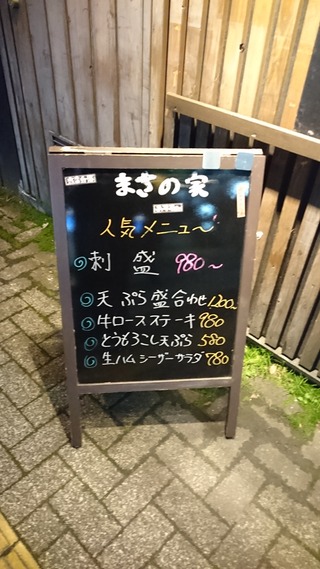 まさの家
人気メニュ〜
刺 盛 980〜
天ぷら盛合わせ1200〜
牛ロースステーキ980
とうもろこし天ぷら580
生ハムシーザーサラダ780